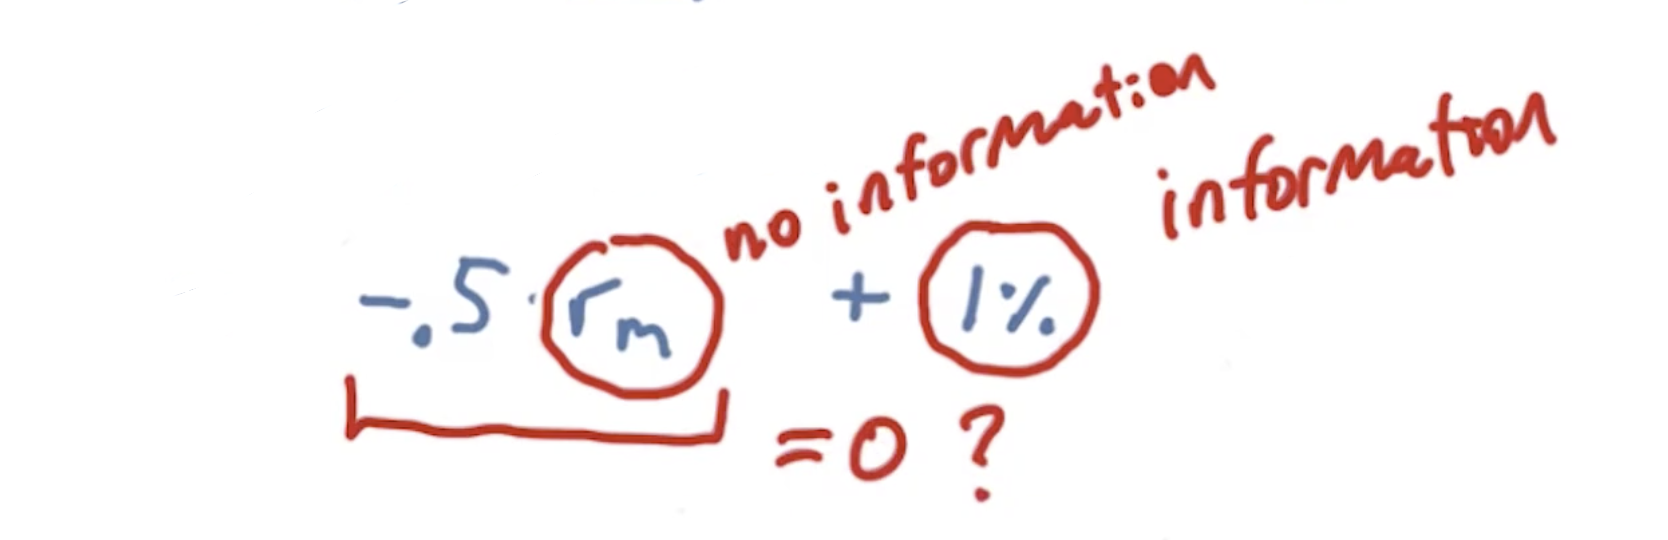 no information
information
-.5 · rₘ + 1%
= 0 ?